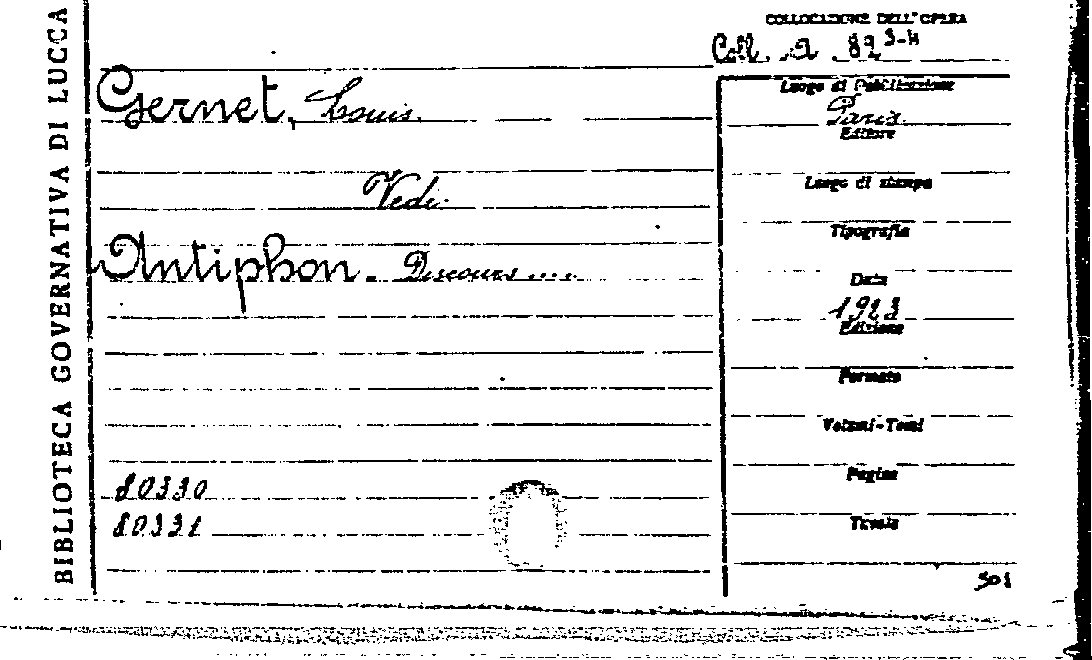 BIBLIOTECA GOVERNATIVA DI LUCCA
COLLOCAZIONE DELL'OPERA
Coll. A 82 3-4
Gernet, Louis.
Vedi.
Antiphon. Discours....
80330
80331
Luogo di Pubblicazione
Paris.
Editore
Luogo di stampa
Tipografia
Data
1923
Edizione
Formato
Volumi-Tomi
Pagine
Tavole
501